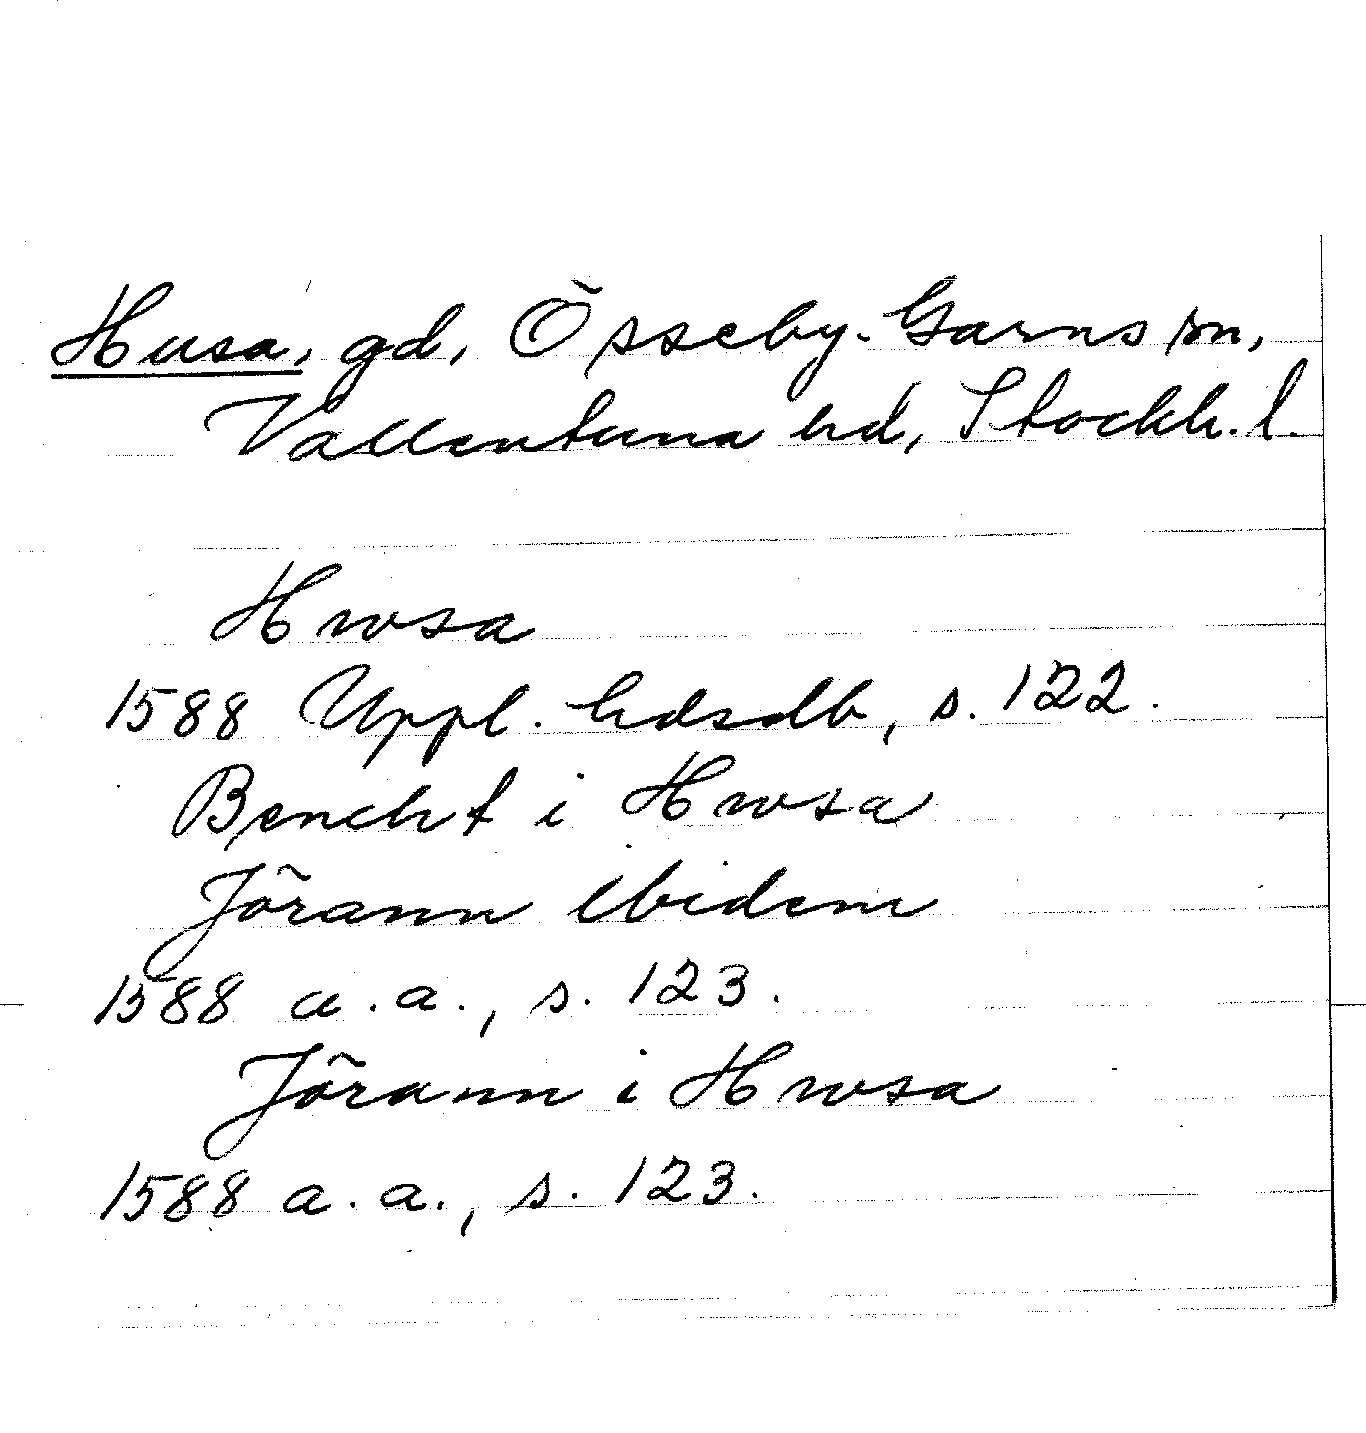 Husa, gd, Össeby-Garns sn,
Vallentuna hd, Stockh. l.
Hwsa
1588 Uppl. hdsdb, s. 122.
Bencht i Hwsa
Jörann ibidem
1588 a.a., s. 123.
Jörann i Hwsa
1588 a.a., s. 123.